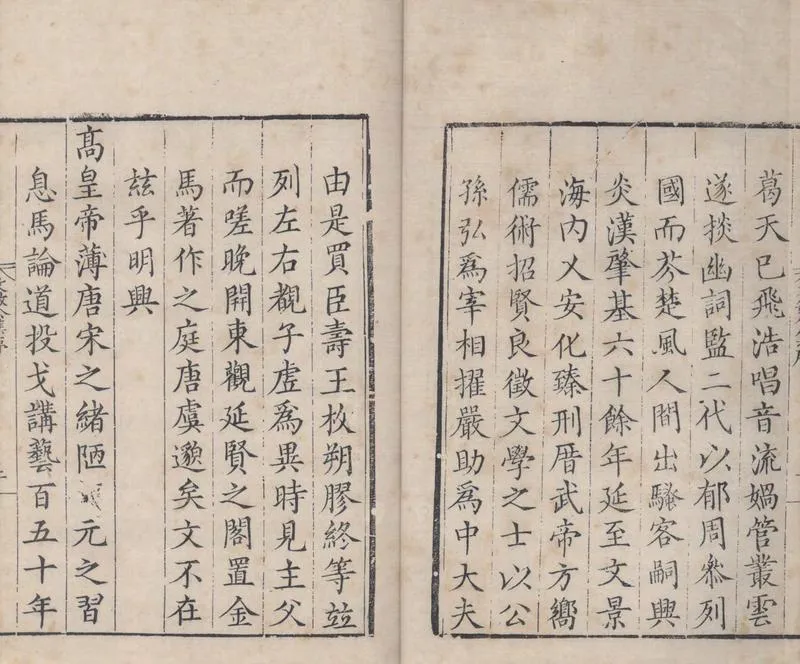 葛天已飛浩唱音流媧管叢雲
遂掞幽詞監二代以郁周叅列
國而芬楚風人間出騷客嗣興
炎漢肇基六十餘年延至文景
海内乂安化臻刑厝武帝方嚮
儒術招賢良徵文學之士以公
孫弘爲宰相擢嚴助爲中大夫
由是買臣壽王枚朔膠終等竝
列左右觀子虛爲異時見主父
而嗟晚開東觀延賢之閣置金
馬著作之庭唐虞邈矣文不在
玆乎明興
高皇帝薄唐宋之緒陋元之習
息馬論道投戈講藝百五十年